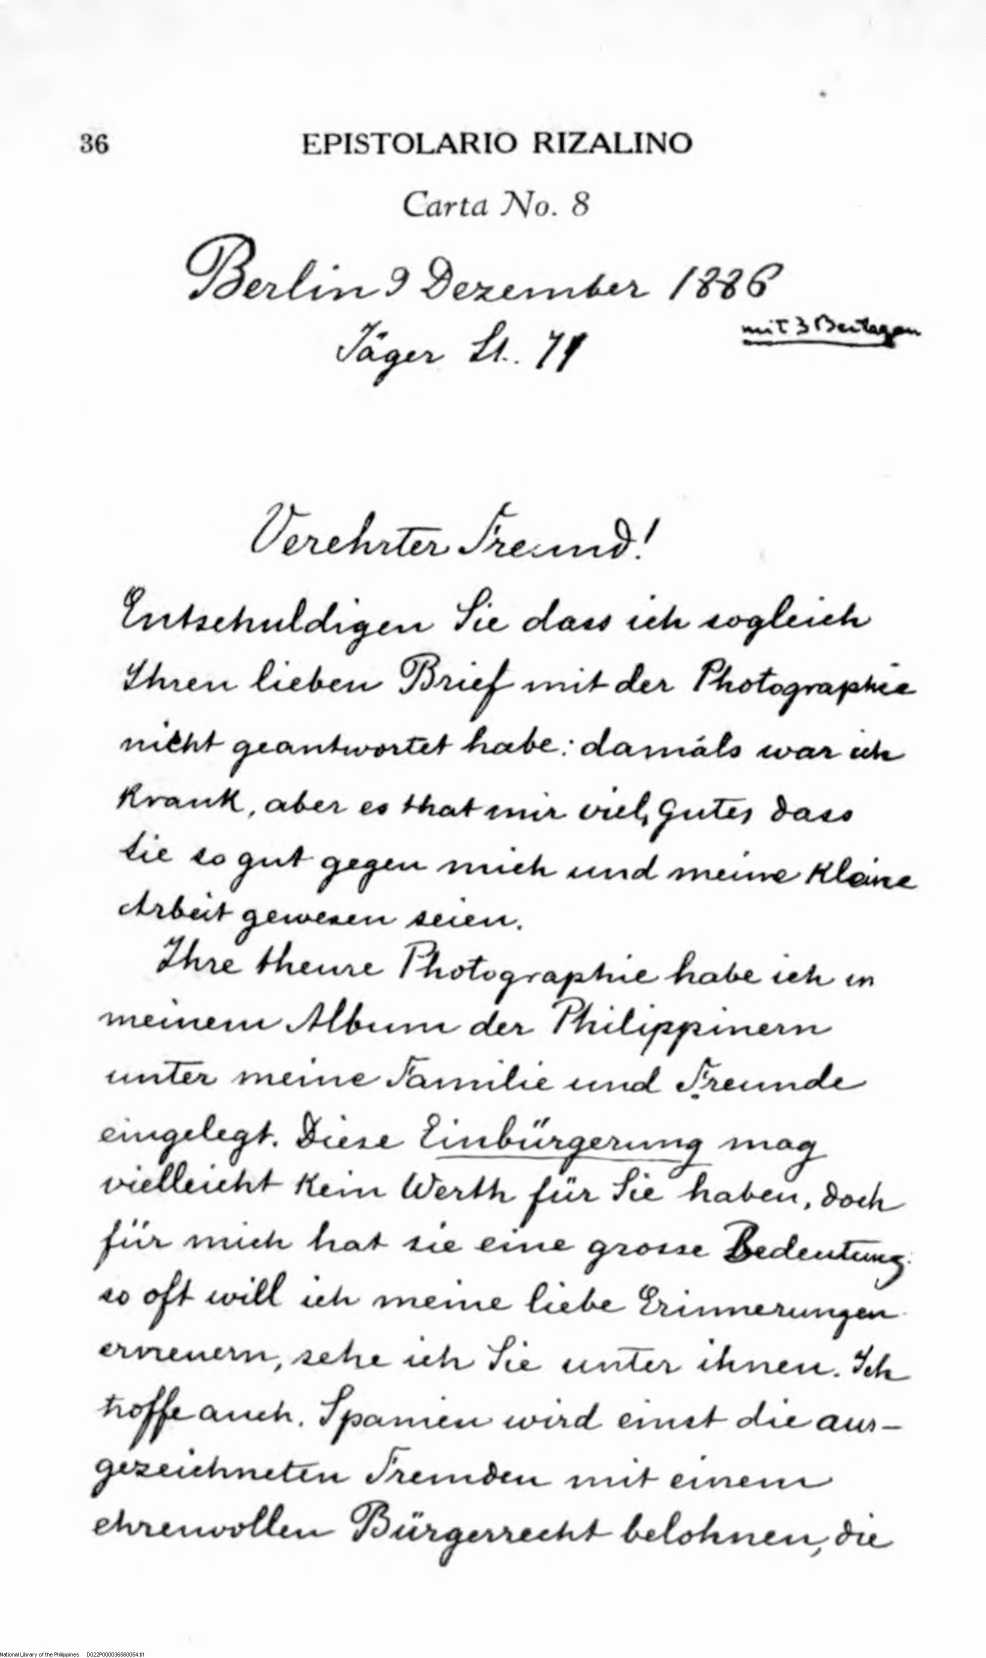 36 EPISTOLARIO RIZALINO
Carta No. 8
Berlin 9 Dezember 1886
mit 3 Beilagen
Jäger St. 71
Verehrter Freund!
Entschuldigen Sie dass ich sogleich
Ihren lieben Brief mit der Photographie
nicht geantwortet habe: damals war ich
krank, aber es that mir viel Gutes dass
Sie so gut gegen mich und meine kleine
Arbeit gewesen seien.
Ihre theure Photographie habe ich in
meinem Album der Philippinern
unter meine Familie und Freunde
eingelegt. Diese Einbürgerung mag
vielleicht kein Werth für Sie haben, doch
für mich hat sie eine grosse Bedeutung:
so oft will ich meine liebe Erinnerungen
erneuern, sehe ich Sie unter ihnen. Ich
hoffe auch. Spanien wird einst die aus-
gezeichneten Fremden mit einem
ehrenvollen Bürgerrecht belohnen, die
National Library of the Philippines D022P000036580054.tif